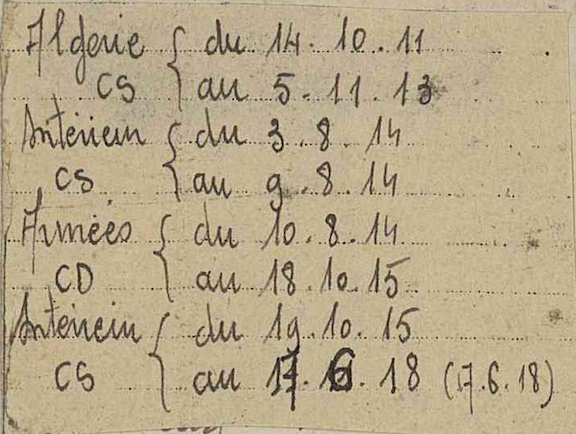 Algérie { du 14. 10. 11
CS { au 5. 11. 13
Intérieur { du 3. 8. 14
CS { au 9. 8. 14
Armées { du 10. 8. 14
CD { au 18. 10. 15
Intérieur { du 19. 10. 15
CS { au 17. 6. 18 (17.6.18)